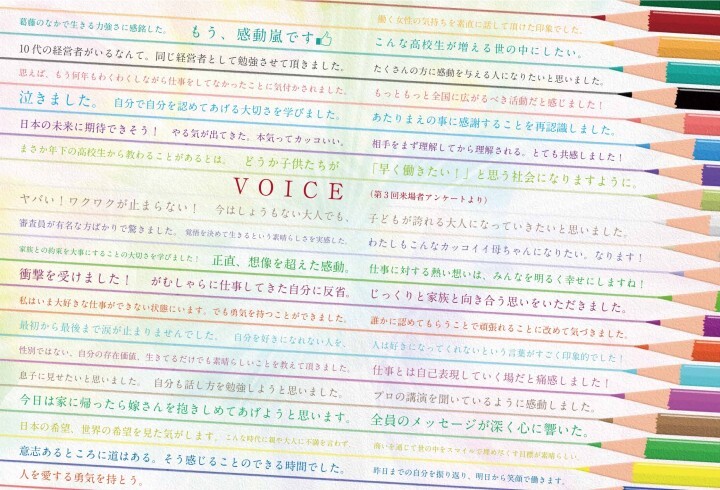 葛藤のなかで生きる力強さに感銘した。 もう、感動嵐です
10代の経営者がいるなんて。同じ経営者として勉強させて頂きました。
思えば、もう何年もわくわくしながら仕事をしてなかったことに気付かされました。
泣きました。 自分で自分を認めてあげる大切さを学びました。
日本の未来に期待できそう! やる気が出てきた。本気ってカッコいい。
まさか年下の高校生から教わることがあるとは。 どうか子供たちが
VOICE
ヤバい!ワクワクが止まらない! 今はしょうもない大人でも、
審査員が有名な方ばかりで驚きました。 覚悟を決めて生きるという素晴らしさを実感した。
家族との約束を大事にすることの大切さを学びました! 正直、想像を超えた感動。
衝撃を受けました! がむしゃらに仕事してきた自分に反省。
私はいま大好きな仕事ができない状態にいます。でも勇気を持つことができました。
最初から最後まで涙が止まりませんでした。 自分を好きになれない人を、
性別ではない、自分の存在価値。生きてるだけでも素晴らしいことを教えて頂きました。
息子に見せたいと思いました。 自分も話し方を勉強しようと思いました。
今日は家に帰ったら嫁さんを抱きしめてあげようと思います。
日本の希望、世界の希望を見た気がします。 こんな時代に親や大人に不満を言わず、
意志あるところに道はある。そう感じることのできる時間でした。
人を愛する勇気を持とう。
働く女性の気持ちを素直に話して頂けた印象でした。
こんな高校生が増える世の中にしたい。
たくさんの方に感動を与える人になりたいと思いました。
もっともっと全国に広がるべき活動だと感じました!
あたりまえの事に感謝することを再認識しました。
相手をまず理解してから理解される。とても共感しました!
「早く働きたい!」と思う社会になりますように。
(第3回来場者アンケートより)
子どもが誇れる大人になっていきたいと思いました。
わたしもこんなカッコイイ母ちゃんになりたい。なります!
仕事に対する熱い想いは、みんなを明るく幸せにしますね!
じっくりと家族と向き合う思いをいただきました。
誰かに認めてもらうことで頑張れることに改めて気づきました。
人は好きになってくれないという言葉がすごく印象的でした!
仕事とは自己表現していく場だと痛感しました!
プロの講演を聞いているように感動しました。
全員のメッセージが深く心に響いた。
商いを通じて世の中をスマイルで埋め尽くす目標が素晴らしい。
昨日までの自分を振り返り、明日から笑顔で働きます。